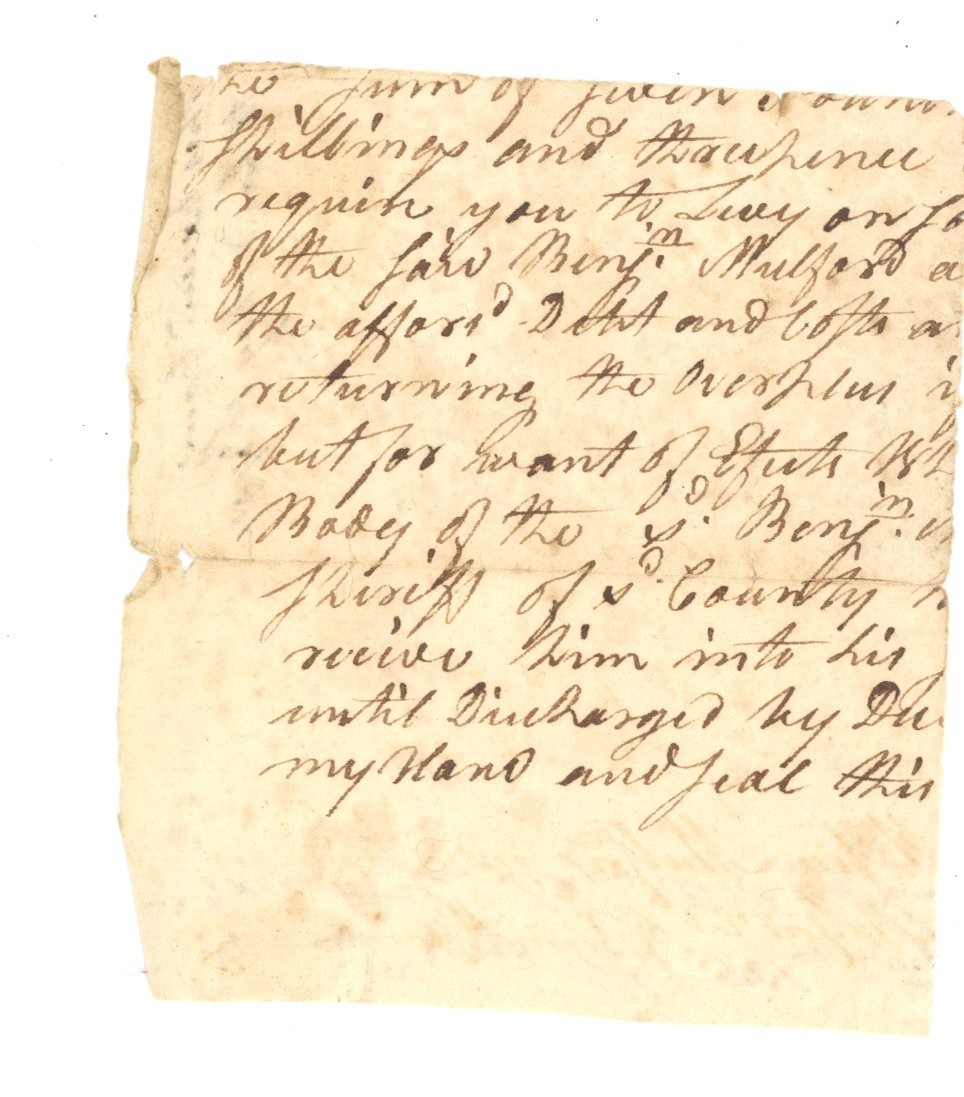 to Sum of Seven Poun
Shillings and threepence
require you to Levy on
of the said Benj.n Mulford a
the affors.d Debt and Costs a
returning the overplus i
but for want of Efects
Body of the s.d Benj.n
Sheriff of s.d County
receive him into his
until Discharged by Du
my Hand and Seal this